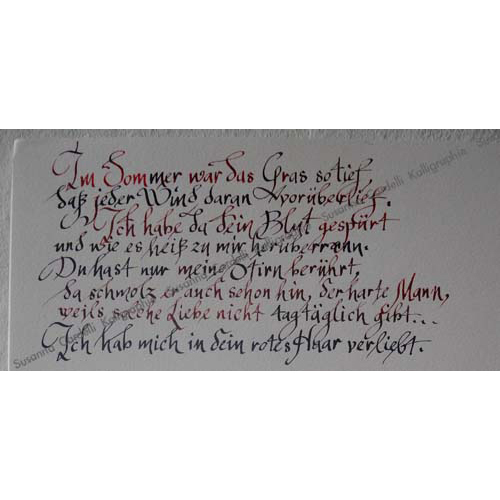 Im Sommer war das Gras so tief,
daß jeder Wind daran vorüberlief.
Ich habe da dein Blut gespürt
und wie es heiß zu mir herüberrann.
Du hast nur mein Stirn berührt,
da schmolz er auch schon hin, der harte Mann,
weils solche Liebe nicht tagtäglich gibt...
Ich hab mich in dein rotes Haar verliebt.
Susanna Cardelli Kalligraphie